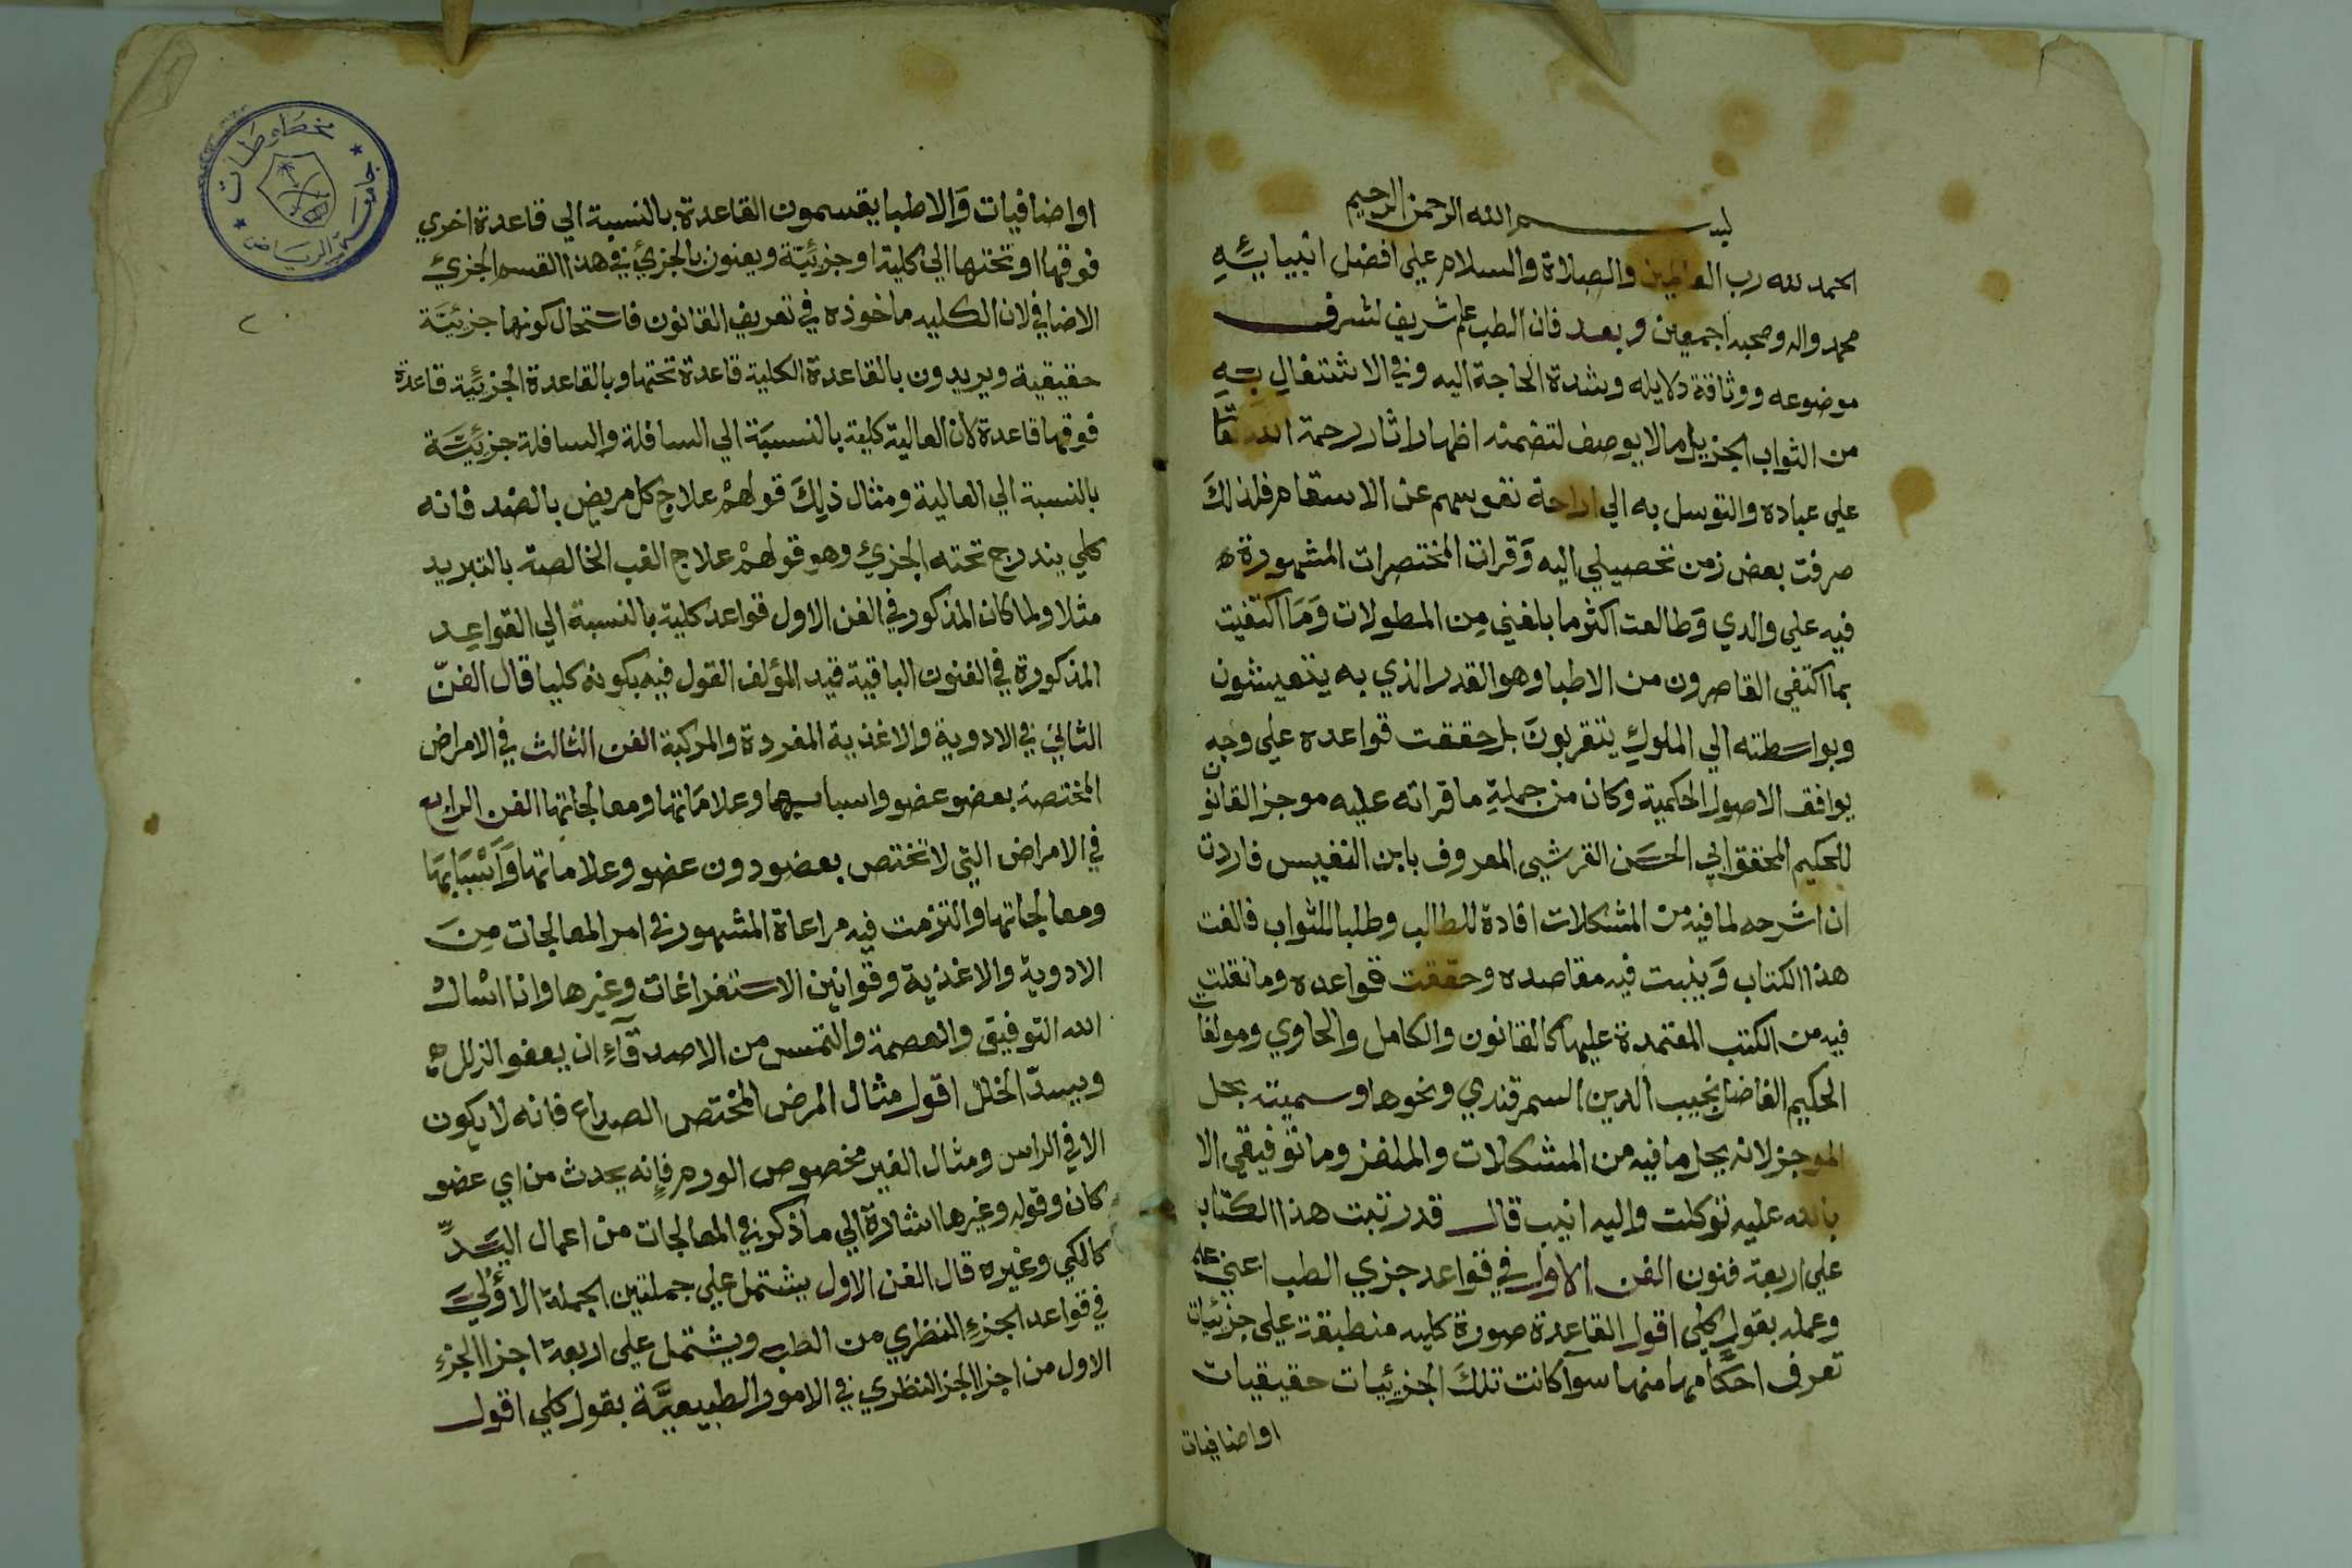 بسم الله الرحمن الرحيم
الحمد لله رب العالمين والصلاة والسلام علي افضل انبيايئه
محمد واله وصحبه اجمعين وبعد فان الطب علم شريف لشرف
موضوعه ووثاقة دلايله وشدة الحاجة اليه وفي الاشتغال به
من الثواب الجزيل مالا يوصف لتضمنه اظهار اثار رحمة الله تعا
علي عباده والتوسل به الي اراحة نفوسهم عن الاسقام فلذلك
صرفت بعض زمن تحصيلي اليه وقرات المختصرات المشهورة
فيه علي والدي وطالعت اكثر ما بلغني من المطولات وما اكتفيت
بما اكتفي القاصرون من الاطبا وهو القدر الذي به يتعيشون
وبواسطته الي الملوك يتقربون بل حققت قواعده علي وجه
يوافق الاصول الحكمية وكان من جملة ما قراته عليه موجز القانون
للحكيم المحقق ابي الحسن القرشي المعروف بابن النفيس فاردت
ان اشرحه لما فيه من المشكلات افادة للطالب وطلبا للثواب فالفت
هذا الكتاب وبينت فيه مقاصده وحققت قواعده وما نقلت
فيه من الكتب المعتمدة عليها كالقانون والكامل والحاوي ومولفات
الحكيم الفاضل نجيب الدين السمرقندي ونحوها وسميته بحل
الموجز لانه يحل ما فيه من المشكلات والملغز وما توفيقي الا
بالله عليه توكلت واليه انيب قال قد رتبت هذا الكتاب
علي اربعة فنون الفن الاول في قواعد جزي الطب اعني علمه
وعمله بقول كلي اقول القاعدة صورة كليه منطبقة علي جزئيات
تعرف احكامها منها سوآ كانت تلك الجزئيات حقيقيات
او اضافيات
او اضافيات والاطبا يقسمون القاعدة بالنسبة الي قاعدة اخري
فوقها او تحتها الي كلية او جزئية ويعنون بالجزئ في هذا القسم الجزئ
الاضافي لان الكليه ماخوذه في تعريف القانون فاستحال كونها جزئية
حقيقية ويريدون بالقاعدة الكلية قاعدة تحتها وبالقاعدة الجزئية قاعدة
فوقها قاعدة لان العالية كلية بالنسبة الي السافلة والسافلة جزئية
بالنسبة الي العالية ومثال ذلك قولهم علاج كل مريض بالضد فانه
كلي يندرج تحته الجزئ وهو قولهم علاج الغب الخالصة بالتبريد
مثلا ولما كان المذكور في الفن الاول قواعد كلية بالنسبة الي القواعد
المذكورة في الفنون الباقية قيد المؤلف القول فيه بكونه كليا قال الفن
الثاني في الادوية والاغذية المفردة والمركبة الفن الثالث في الامراض
المختصة بعضو عضو واسبابها وعلاماتها ومعالجاتها الفن الرابع
في الامراض التي لا تختص بعضو دون عضو وعلاماتها واسبابها
ومعالجاتها والتزمت فيه مراعاة المشهور في امر المعالجات من
الادوية والاغذية وقوانين الاستفراغات وغيرها وانا اسال
الله التوفيق والعصمة والتمس من الاصدقآء ان يعفو الزلل
ويسد الخلل اقول مثال المرض المختص الصداع فانه لا يكون
الا في الراس ومثال الغير مخصوص الورم فانه يحدث من اي عضو
كان وقوله وغيرها اشارة الي ما ذكر في المعالجات من اعمال اليد
كالكي وغيره قال الفن الاول يشتمل علي جملتين الجملة الاولي
في قواعد الجزء النظري من الطب ويشتمل علي اربعة اجزا الجزء
الاول من اجزا الجز النظري في الامور الطبيعية بقول كلي اقول
جامعة الرياض
مخطوطات
٢